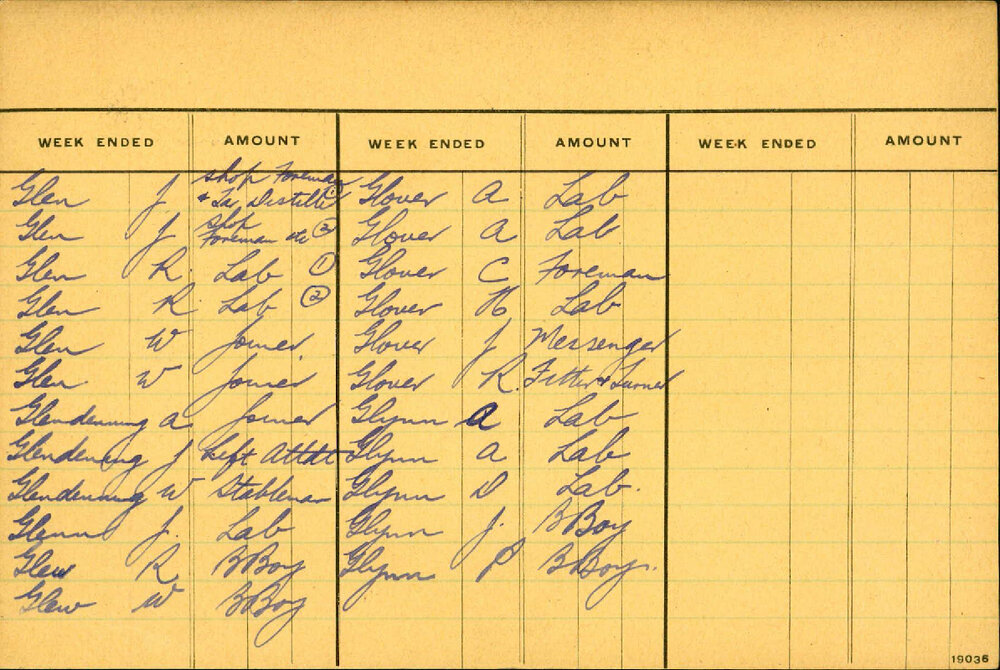 WEEK ENDED AMOUNT WEEK ENDED AMOUNT WEEK ENDED AMOUNT
Glen J. Shop Foreman
& Tar Distiller ①
Glen J Shop
Foreman etc ②
Glen R. Lab ①
Glen R Lab ②
Glen W Joiner
Glen W Joiner
Glendenning A Joiner
Glendening J Lift Attdt
Glendenning W Stableman
Glenn J. Lab
Glew R B Boy
Glew W B Boy
Glover A Lab
Glover A Lab
Glover C Foreman
Glover H Lab
Glover J Messenger
Glover R. Fitter & Turner
Glynn A Lab
Glynn A Lab
Glynn D Lab.
Glynn J. B Boy
Glynn P B Boy.
19036